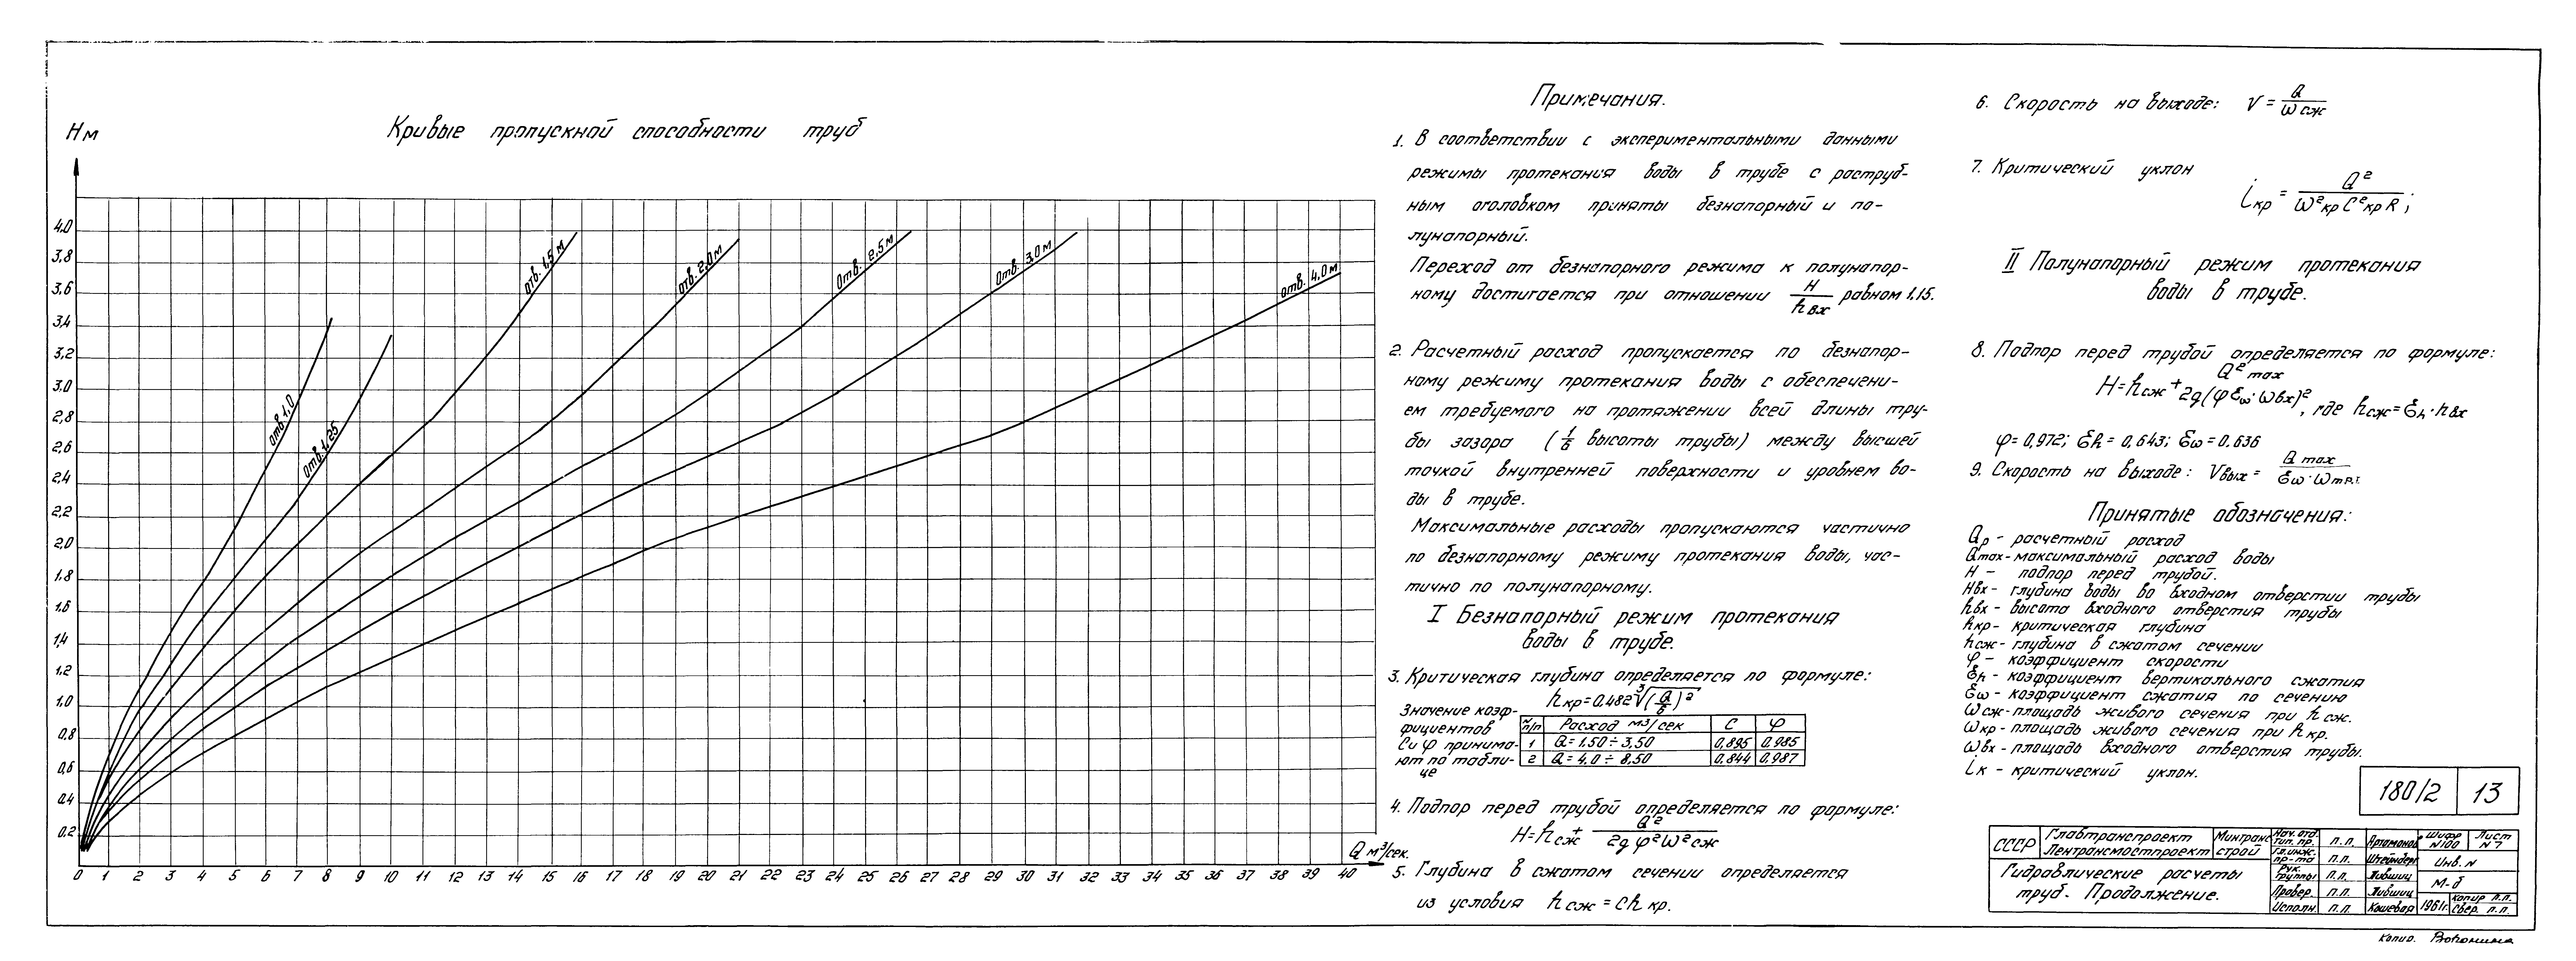 Кривые пропускной способности труб
Hм
4.0
3,8
3,6
3,4
3,2
3.0
2,8
2,6
2,4
2,2
2,0
1.8
1.6
1,4
1.2
1,0
0,8
0,6
0.4
0,2
отв.1,0
отв.1,25
отв. 1,5м
отв. 2,0м
Отв. 2,5м
Отв. 3,0м
отв. 4,0м
0 1 2 3 4 5 6 7 8 9 10 11 12 13 14 15 16 17 18 19 20 21 22 23 24 25 26 27 28 29 30 31 32 33 34 35 36 37 38 39 40
Q м³/сек.
Примечания.
1. В соответствии с экспериментальными данными
режимы протекания воды в трубе с раструб-
ным оголовком приняты безнапорный и по-
лунапорный.
Переход от безнапорного режима к полунапор-
ному достигается при отношении H/hвх равном 1,15.
2. Расчетный расход пропускается по безнапор-
ному режиму протекания воды с обеспечени-
ем требуемого на протяжении всей длины тру-
бы зазора (1/6 высоты трубы) между высшей
точкой внутренней поверхности и уровнем во-
ды в трубе.
Максимальные расходы пропускаются частично
по безнапорному режиму протекания воды, час-
тично по полунапорному.
I Безнапорный режим протекания
воды в трубе.
3. Критическая глубина определяется по формуле:
hкр=0.482∛(Q/б)²
Значение коэф-
фициентов
С и φ принима-
ют по табли-
це
№ п/п Расход м3/сек С φ
1 Q=1.50÷3,50 0,895 0.985
2 Q=4,0÷8,50 0.844 0.987
4. Подпор перед трубой определяется по формуле:
H=hсж+Q²/2gφ²ω²сж
5. Глубина в сжатом сечении определяется
из условия hсж=Chкр.
6. Скорость на выходе: V=Q/ωсж
7. Критический уклон
iкр=Q²/ω²кр C²кр R;
II Полунапорный режим протекания
воды в трубе.
8. Подпор перед трубой определяется по формуле:
H=hсж+Q²max/2g(φƐω·ωвх)², где hсж=Ɛh·hвх
φ=0,972; Ɛh=0,643; Ɛω=0.636
9. Скорость на выходе: Vвых=Qmax/Ɛω·ωтр.
Принятые обозначения:
Qр- расчетный расход
Qmax-максимальный расход воды
H - подпор перед трубой.
Hвх- глубина воды во входном отверстии трубы
hвх- высота входного отверстия трубы
hкр- критическая глубина
hсж- глубина в сжатом сечении
φ - коэффициент скорости
Ɛh - коэффициент вертикального сжатия
Ɛω - коэффициент сжатия по сечению
ωсж-площадь живого сечения при hсж.
ωкр-площадь живого сечения при hкр.
ωвх-площадь входного отверстия трубы.
iк - критический уклон.
180/2 13
СССР Главтранспроект Минтранс
Лентрансмостпроект строй
Гидравлические расчеты
труб. Продолжение.
Нач. отд. тип. пр. п.п. Артамонов
Гл. инж. пр-та п.п. Штейнберг
Рук. группы п.п. Лившиц
Провер. п.п. Лившиц
Исполн. п.п. Кошевая
Шифр №100 Лист №7
Инв. №
М-б
1961г. Копир п.п.
Свер. п.п.
Копир.